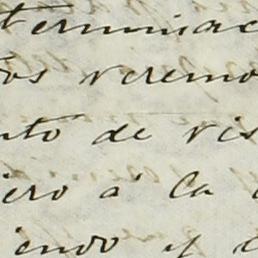 terminac
os veremo
nto de vis
iero á la
iendo y